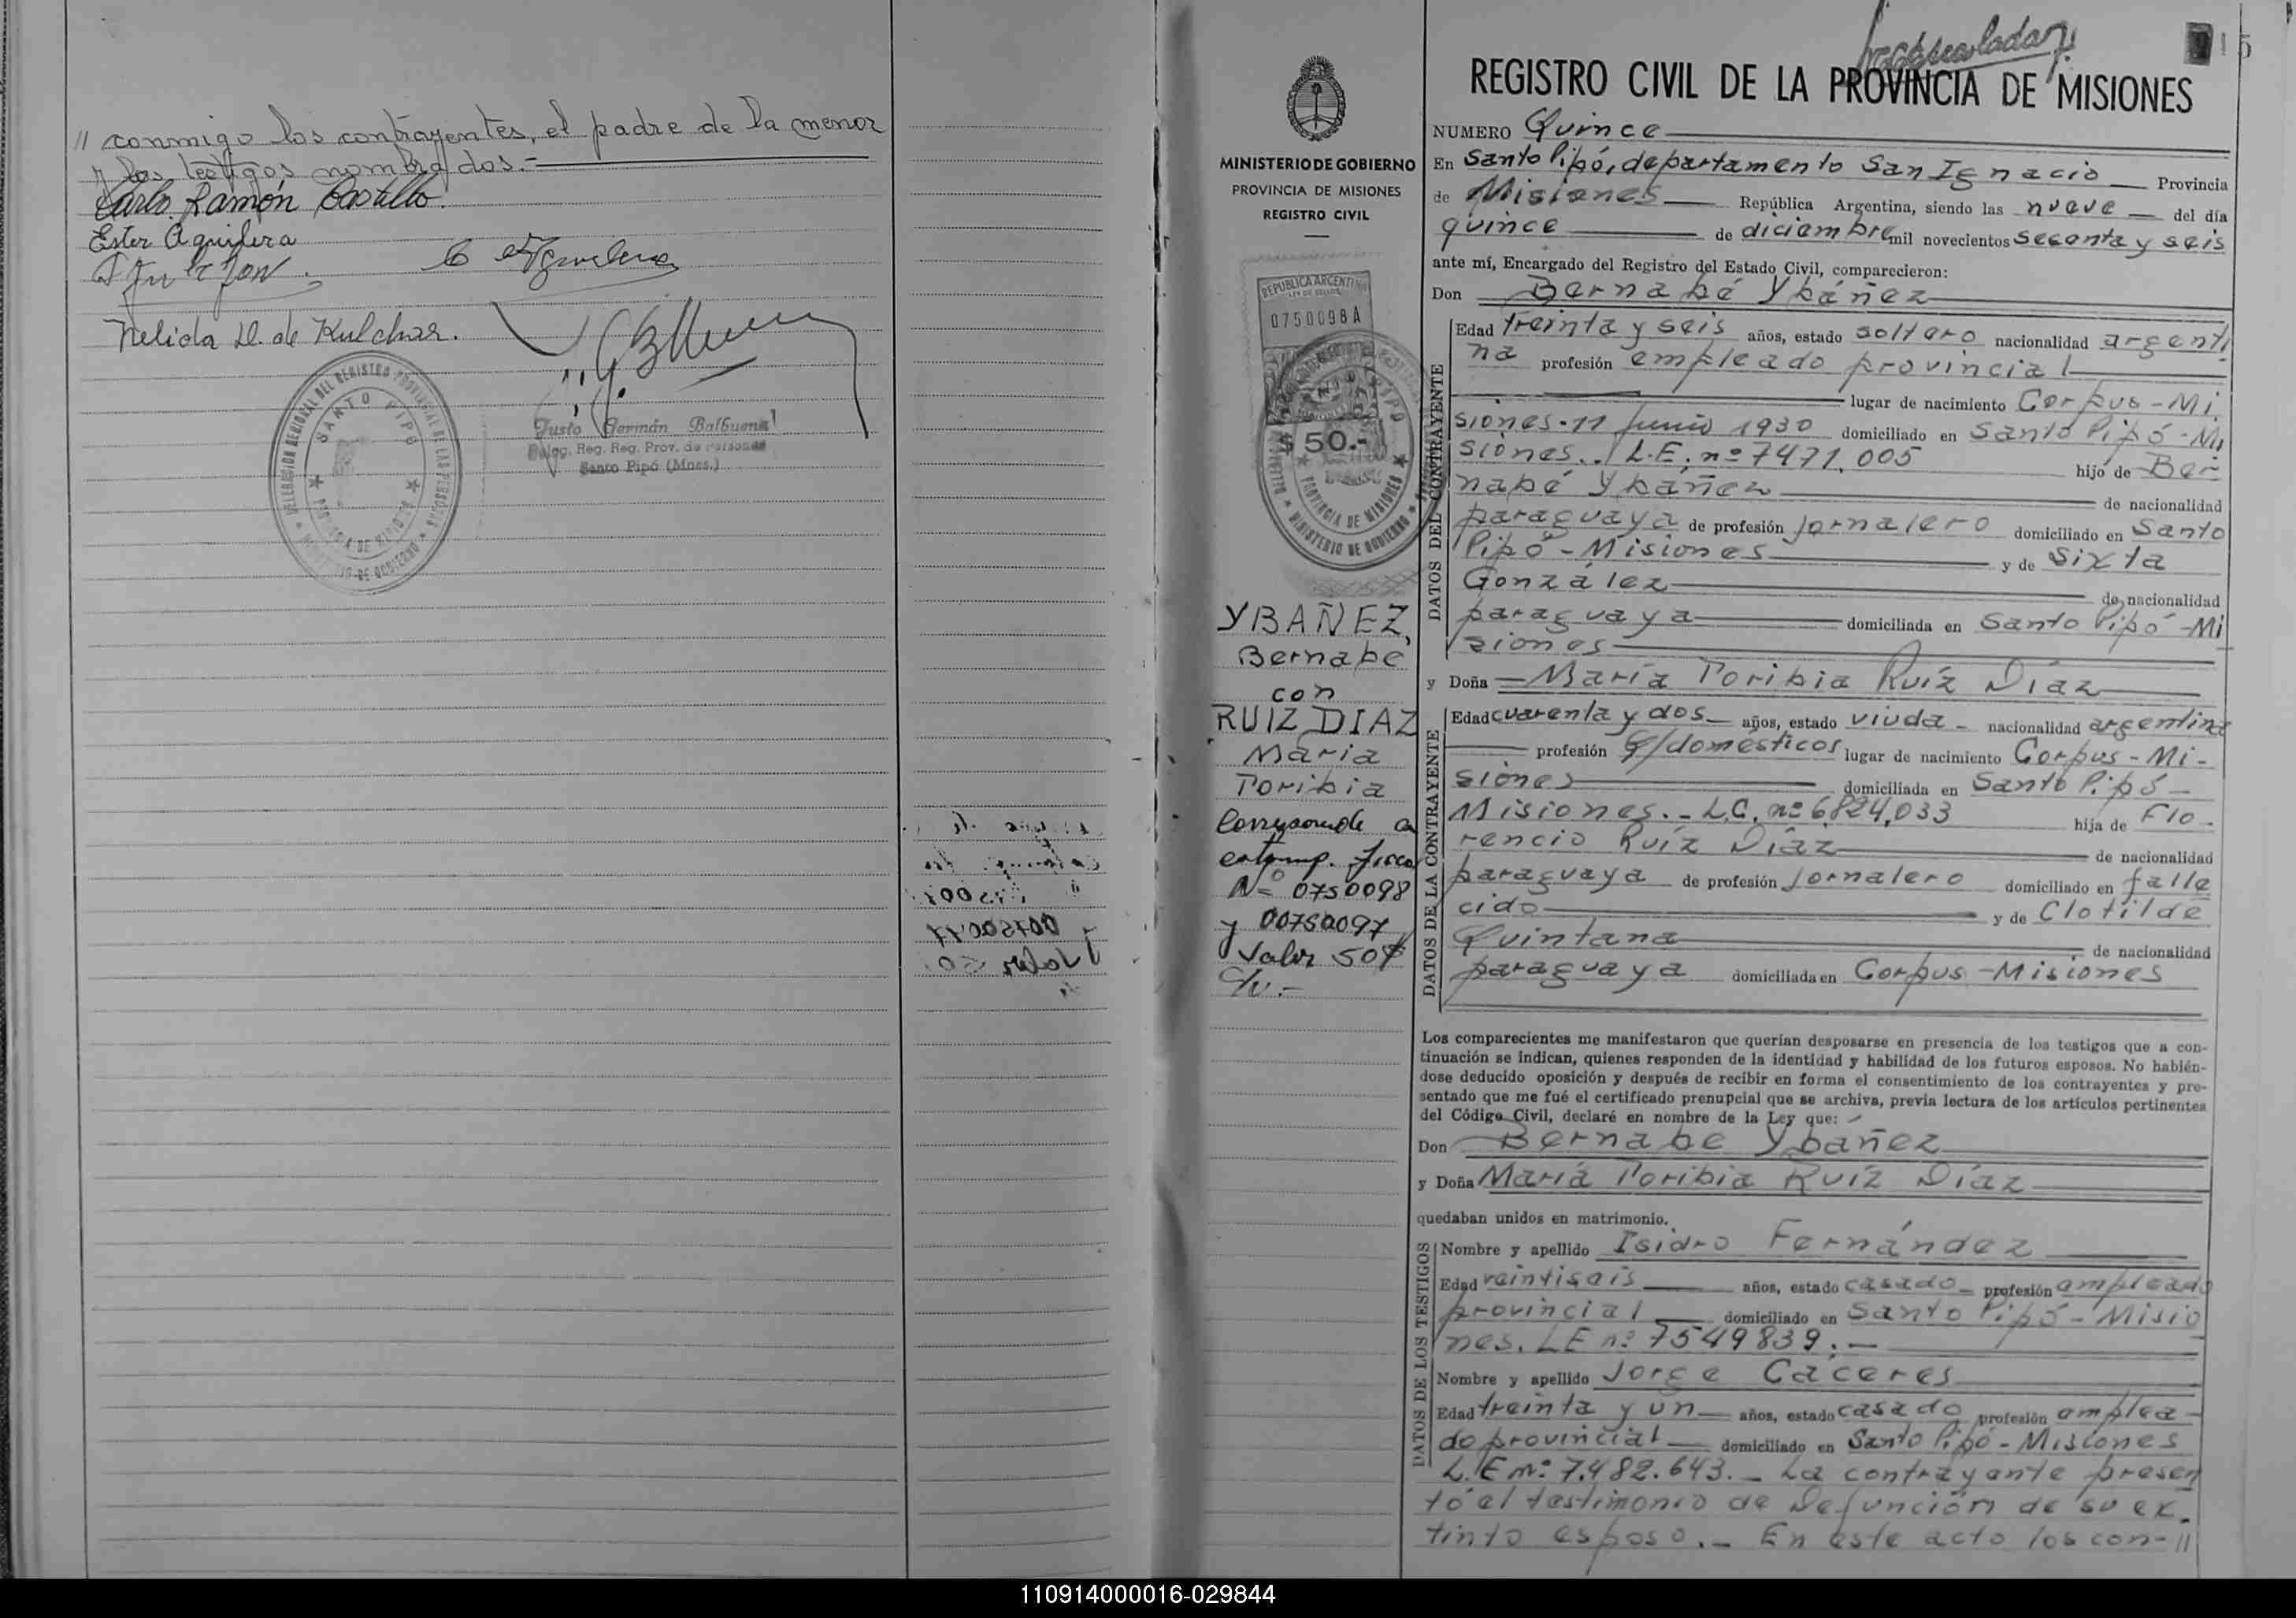 // conmigo los contrayentes, el padre de la menor
y los testigos nombrados.-
Carlo. Ramón Castillo.
Ester Aguilera
Nelida D. de Kulchar.
DELEGACION REGIONAL DEL REGISTRO PROVINCIAL DE LAS PERSONAS
SANTO PIPO
PROVINCIA DE MISIONES
MINISTERIO DE GOBIERNO
Justo Germán Balbuena
Deleg. Reg. Reg. Prov. de Personas
Santo Pipó (Mnes.)
MINISTERIO DE GOBIERNO
PROVINCIA DE MISIONES
REGISTRO CIVIL
REPUBLICA ARGENTINA
LEY DE SELLOS
0750098A
$ 50.-
PROVINCIA DE MISIONES
MINISTERIO DE GOBIERNO
YBAÑEZ,
Bernabé
con
RUIZ DIAZ
Maria
Toribia
Corresponde a
estamp. fiscal
Nº 0750098
y 00750097
Valor 50$
c/u.-
5
REGISTRO CIVIL DE LA PROVINCIA DE MISIONES
NUMERO Quince
En Santo Pipó, departamento San Ignacio Provincia
de Misiones República Argentina, siendo las nueve del día
quince de diciembre mil novecientos secenta y seis
ante mí, Encargado del Registro del Estado Civil, comparecieron:
Don Bernabé Ybáñez
DATOS DEL CONTRAYENTE
Edad treinta y seis años, estado soltero nacionalidad argenti
na profesión empleado provincial
lugar de nacimiento Corpus-Mi.
siones-11 Junio 1930 domiciliado en Santo Pipó-Mi
siones../L.E. nº 7471.005 hijo de Ber
nabé Ybáñez de nacionalidad
paraguaya de profesión Jornalero domiciliado en Santo
Pipó-Misiones y de Sixta
González de nacionalidad
paraguaya domiciliada en Santo Pipó-Mi
siones
y Doña María Toribia Ruíz Díaz
DATOS DE LA CONTRAYENTE
Edad cuarenta y dos años, estado viuda nacionalidad argentina
profesión Q/domésticos lugar de nacimiento Corpus-Mi-
siones domiciliada en Santo Pipó-
Misiones.-L.C. nº 6.824,033 hija de Flo-
rencio Ruíz Díaz de nacionalidad
paraguaya de profesión Jornalero domiciliado en falle
cido y de Clotilde
Quintana de nacionalidad
paraguaya domiciliada en Corpus-Misiones
Los comparecientes me manifestaron que querían desposarse en presencia de los testigos que a con-
tinuación se indican, quienes responden de la identidad y habilidad de los futuros esposos. No habién-
dose deducido oposición y después de recibir en forma el consentimiento de los contrayentes y pre-
sentado que me fué el certificado prenupcial que se archiva, previa lectura de los artículos pertinentes
del Código Civil, declaré en nombre de la Ley que:
Don Bernabe Ybañez
y Doña María Toribia Ruíz Díaz
quedaban unidos en matrimonio.
DATOS DE LOS TESTIGOS
Nombre y apellido Isidro Fernández
Edad veintiseis años, estado casado profesión empleado
provincial domiciliado en Santo Pipó-Misio
nes. LE nº 7549839.-
Nombre y apellido Jorge Cáceres
Edad treinta y un años, estado casado profesión emplea-
do provincial domiciliado en Santo Pipó-Misiones
L.E nº 7.482.643.- La contrayente presen
tó el testimonio de Defunción de su ex-
tinto esposo.- En éste acto los con-//
110914000016-029844